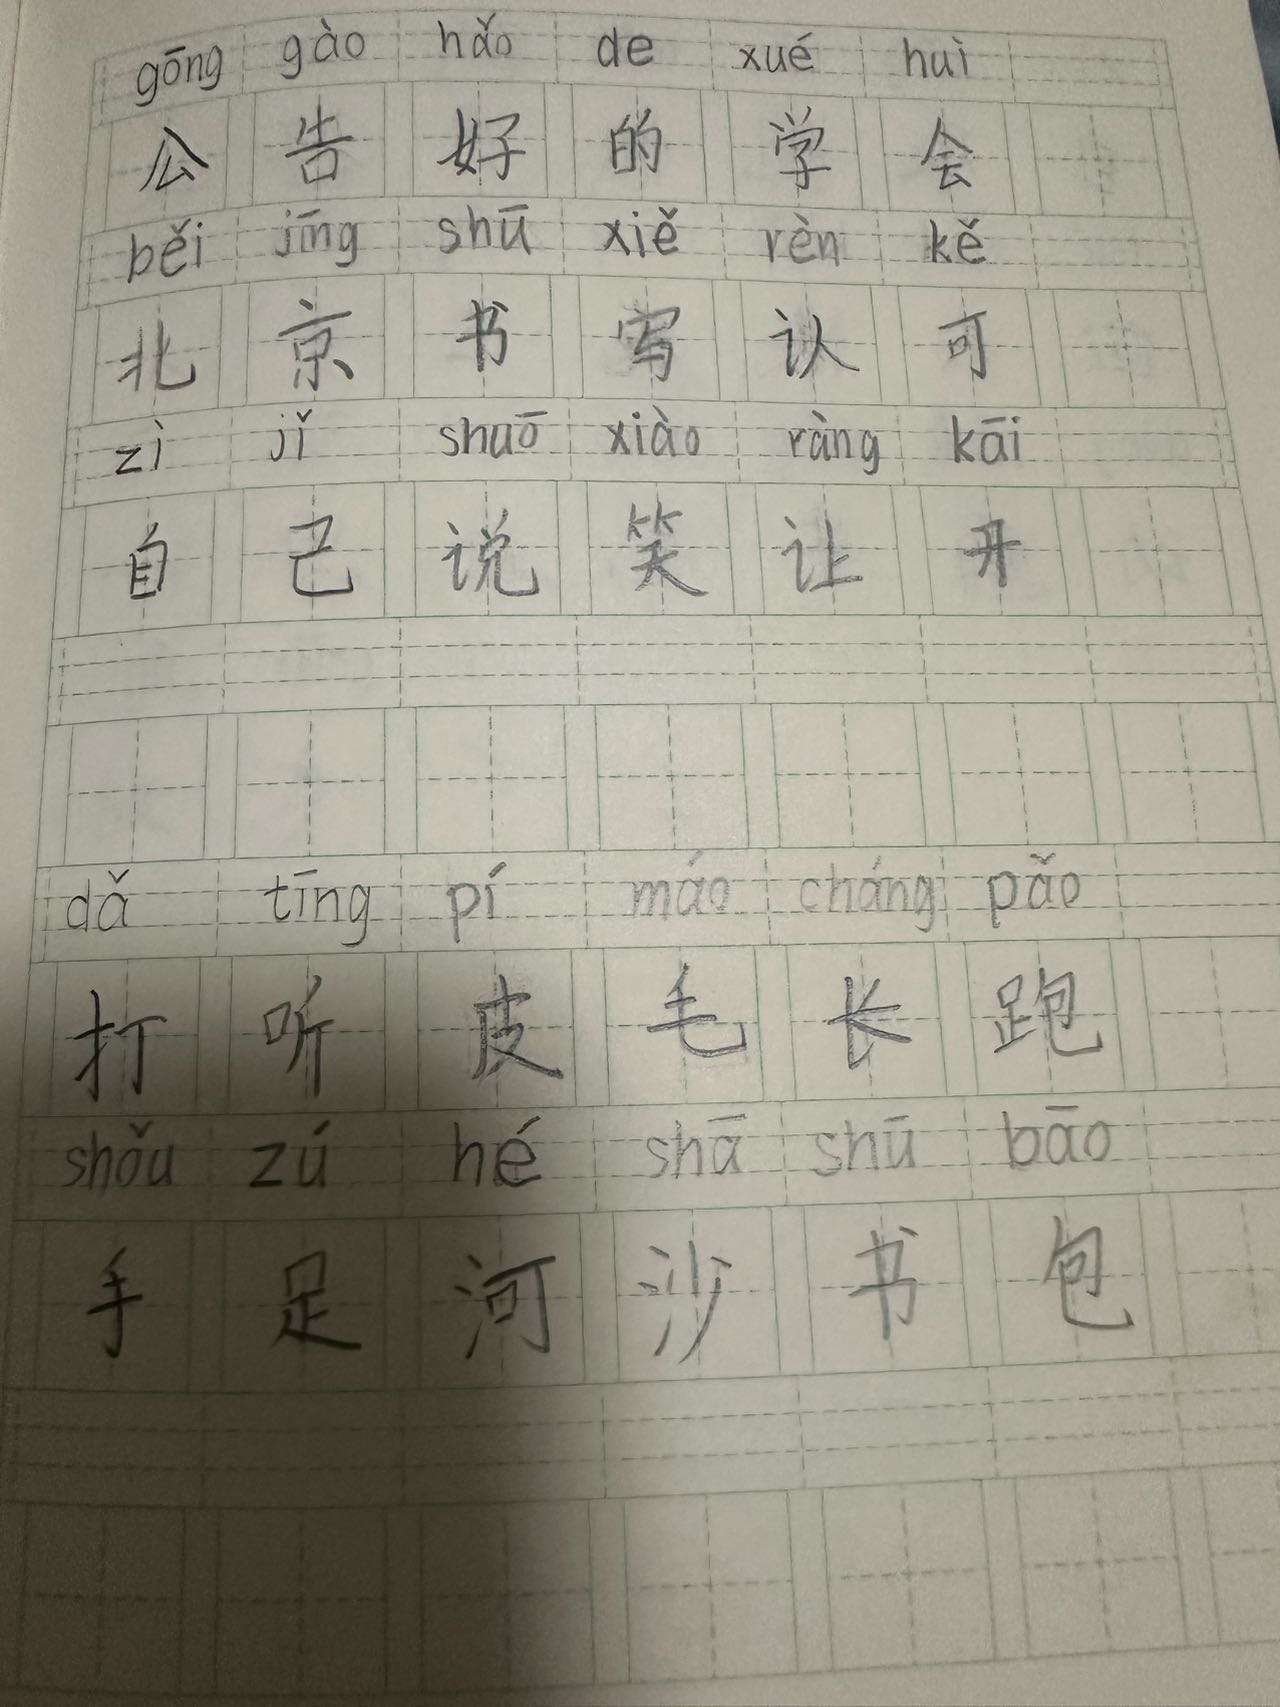 gōng gào hǎo de xué huì
公 告 好 的 学 会
běi jīng shū xiě rèn kě
北 京 书 写 认 可
zì jǐ shuō xiào ràng kāi
自 己 说 笑 让 开
dǎ tīng pí máo cháng pǎo
打 听 皮 毛 长 跑
shǒu zú hé shā shū bāo
手 足 河 沙 书 包